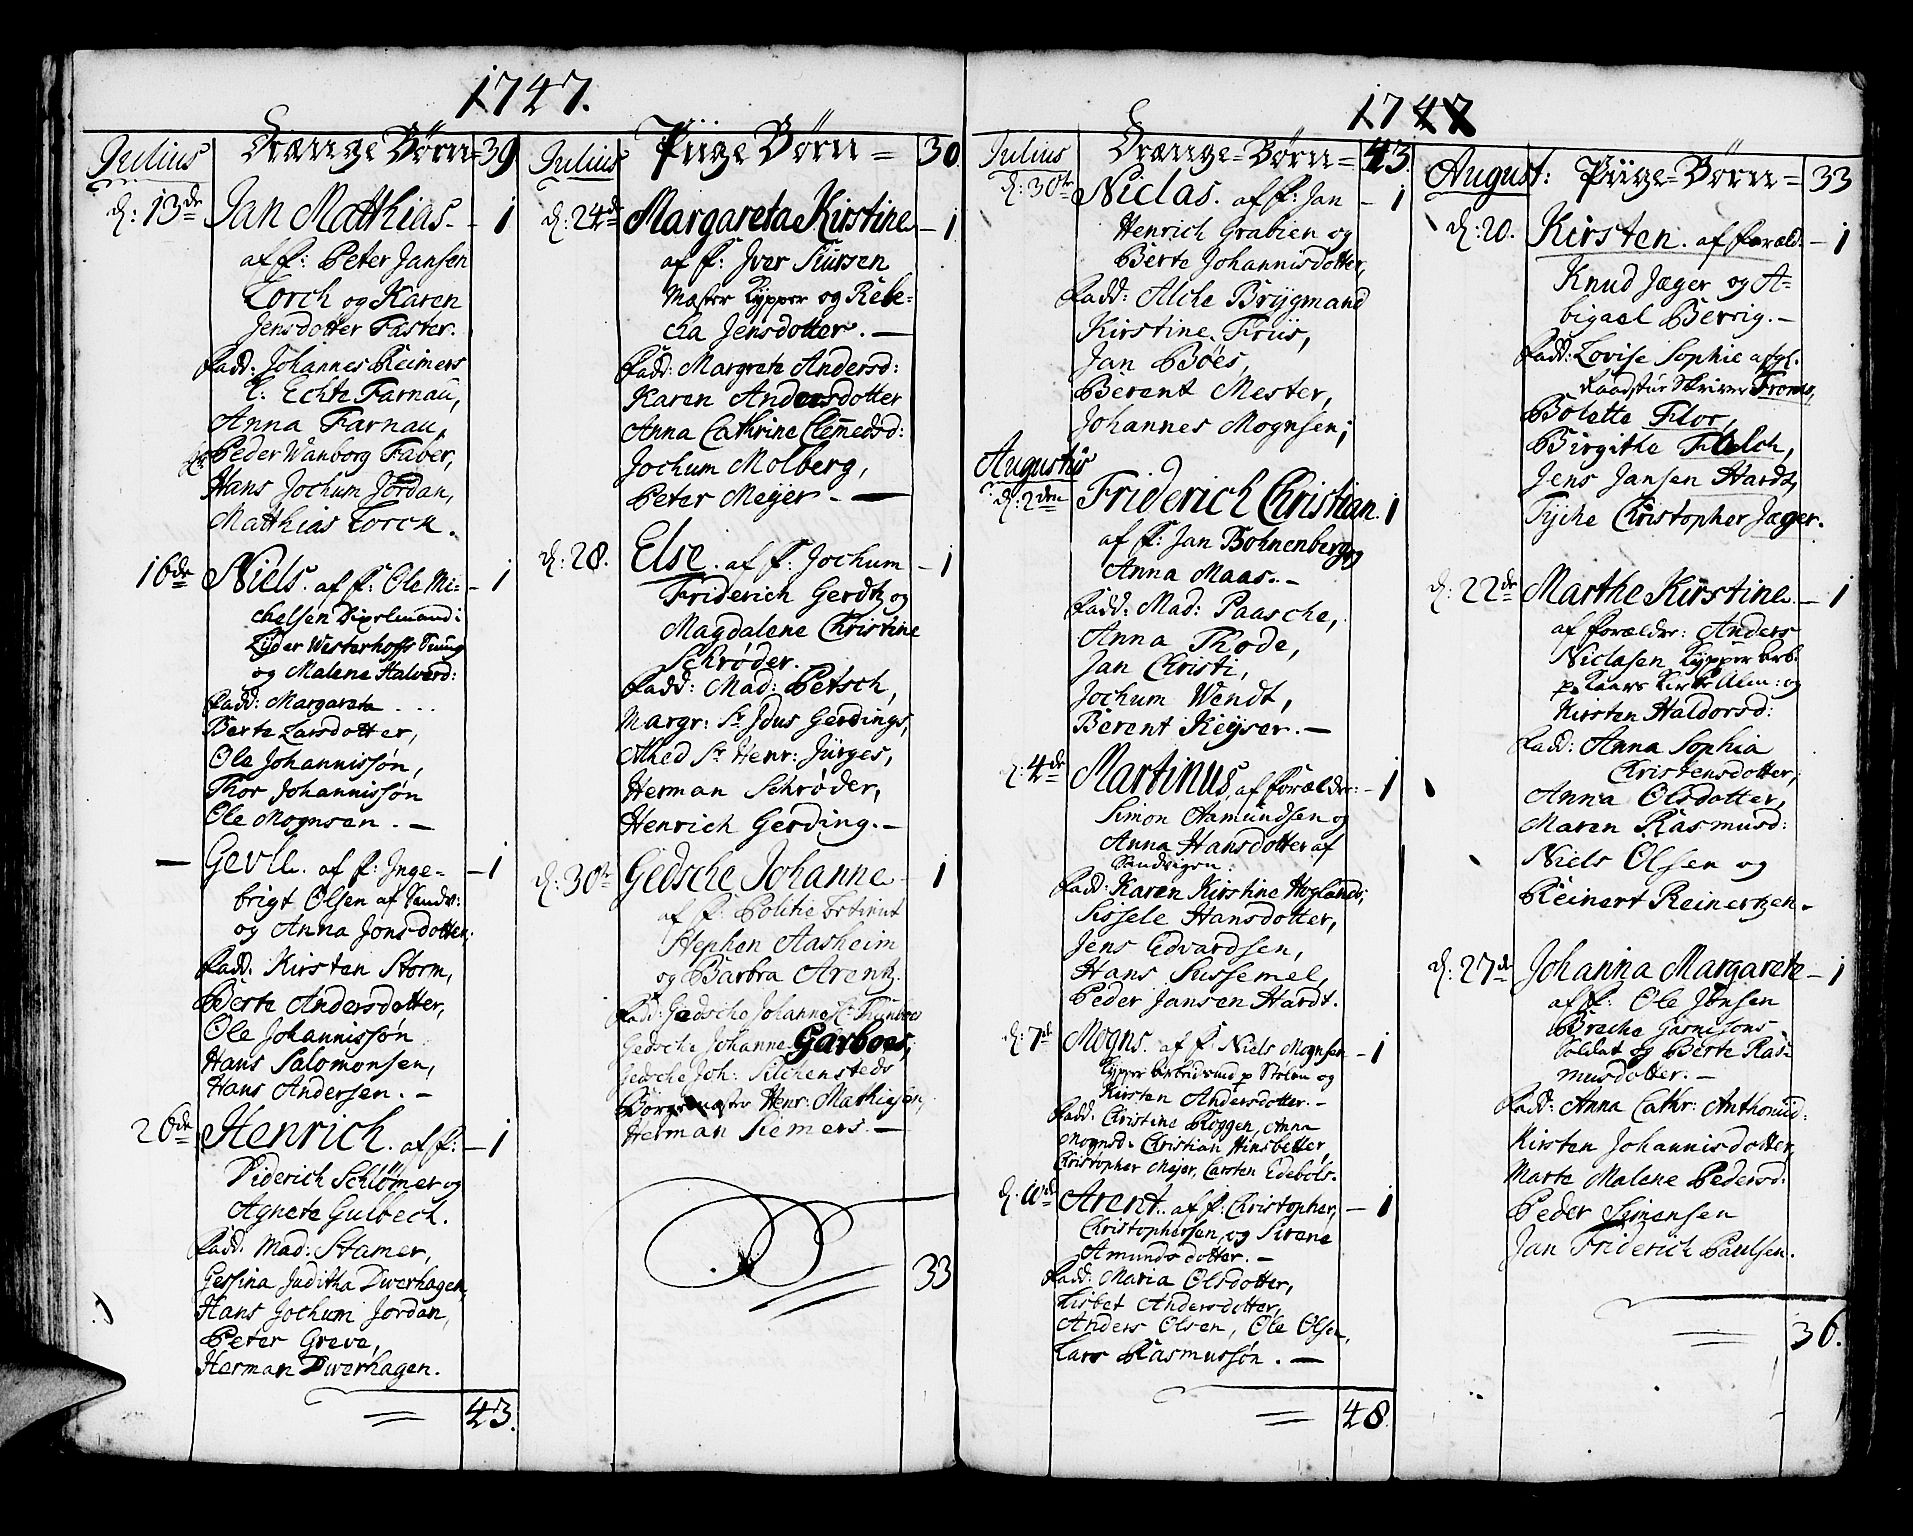 1747.
Julius
Drænge Børn = 39
d: 13de Jan Matthias. - 1
af f: Peter Jansen
Lorch og Karen
Jensdotter Faster.
Fadd: Johannes Reimers
C: Echte Farnau,
Anna Farnau,
Peder Wanborg Faber,
Hans Jochum Jordan,
Matthias Lorck.
16de Niels. af f: Ole Mi- - 1
chelsen
Lyder Westerhoffs
og Malene Halvord:
Fadd: Margareta ...
Berte Larsdotter,
Ole Johannissøn,
Thor Johannissøn
Ole Mognsen. -
- Gevle. af f: Inge- - 1
brigt Olsen af Sandv:
og Anna Jonsdotter,
Fadd: Kirsten Storm,
Berte Andersdotter,
Ole Johannissøn
Hans Salomonsen,
Hans Andersen. -
26de Henrich. af f: - 1
Diderich Schlømer og
Agnete Gulbech.
Fadd: Mad: Stamer,
Gessina Juditha Dwerhagen,
Hans Jochum Jordan,
Peter Greve,
Herman Dwerhagen.
43.
Julius
Piige Børn = 30
d: 24de Margareta Kirstine. - 1
af f: Iver Siursen
Mæster Kypper og Rebe-
cha Jensdotter. -
Fadd: Margrete Andersd:
Karen Andersdotter
Anna Cathrine Clemedsd:
Jochum Molberg,
Peter Meyer. -
d: 28. Else. af f: Jochum - 1
Friderich Gerdtz og
Magdalene Christine
Schrøder.
Fadd: Mad: Petsch,
Margr: Sr Idus Gerdings,
Alhed Sr Henr: Jürges,
Herman Schrøder,
Henrich Gerding. -
d: 30te Gedsche Johanne - 1
af f: Politie
Stephen Aasheim
og Barbra Arentz.
Fadd: Gedsche Johanne
Gedsche Johanne Garboes,
Gedsche Joh: Silchensteds
Borgemæster Henr: Mathiesen,
Herman Siemers. -
33
1747
Julius
Drænge = Børn = 43.
d: 30te Niclas. af f: Jan - 1
Henrich Grabien og
Berte Johannisdotter,
Fadd: Alche Brygmand
Kirstine Friis,
Jan Böes,
Berent Mester,
Johannes Mognsen;
Augustus
d: 2den Friderich Christian. 1
af f: Jan Bohnenberg og
Anna Maas. -
Fadd: Mad: Paasche,
Anna Thode,
Jan Christi,
Jochum Wendt,
Berent Keyser. -
d: 4de Martinus, af Forælder: - 1
Simon Aamundsen og
Anna Hansdotter af
Sandvigen:
Fadd: Karen Kirstine Hoglands,
Sissele Hansdotter,
Jens Edvardsen,
Hans Sissemel,
Peder Jansen Hardt.
d: 7de Mogns. af f: Niels Mognsen - 1
Kypper Arbeidsmd p Stølen og
Kirsten Andersdotter. -
Fadd: Christine Roggen, Anna
Mognsd. Christian Hinsbetter,
Christopher Mejer, Carsten Edebols.
d: 10de Arent. af f: Christopher, - 1
Christophersen, og Sirene
Amundsdotter. -
Fadd: Maria Olsdotter,
Lisbet Andersdotter,
Anders Olsen, Ole Olsen,
Lars Rasmussøn. -
48.
August:
Piige = Børn = 33
d: 20. Kirsten. af foræld: - 1
Knud Jæger og A-
bigael Berrig. -
Fadd: Lovise Sophie afgl.
Raadstue Skriver Froms,
Bolette Flor,
Birgithe Falch,
Jens Jansen Hardt,
Tyche Christopher Jæger.
d: 22de Marthe Kirstine. - 1
af forælder: Anders
Niclasen Kypper Arb:
p. Kaars Kirke Alm: og
Kirsten Haldorsd:
Fadd: Anna Sophia
Christensdotter,
Anna Olsdotter,
Maren Rasmusd:
Niels Olsen og
Reinert Reinertzen.
d: 27de Johanna Margarete - 1
af f: Ole Jensen
Breche Garnisons
Soldat og Berte Ras-
musdotter. -
Fadd: Anna Cathr: Anthonid:
Kirsten Johannisdotter,
Marte Malene Pedersd:
Peder Simensen
Jan Friderich Paulsen.
36.